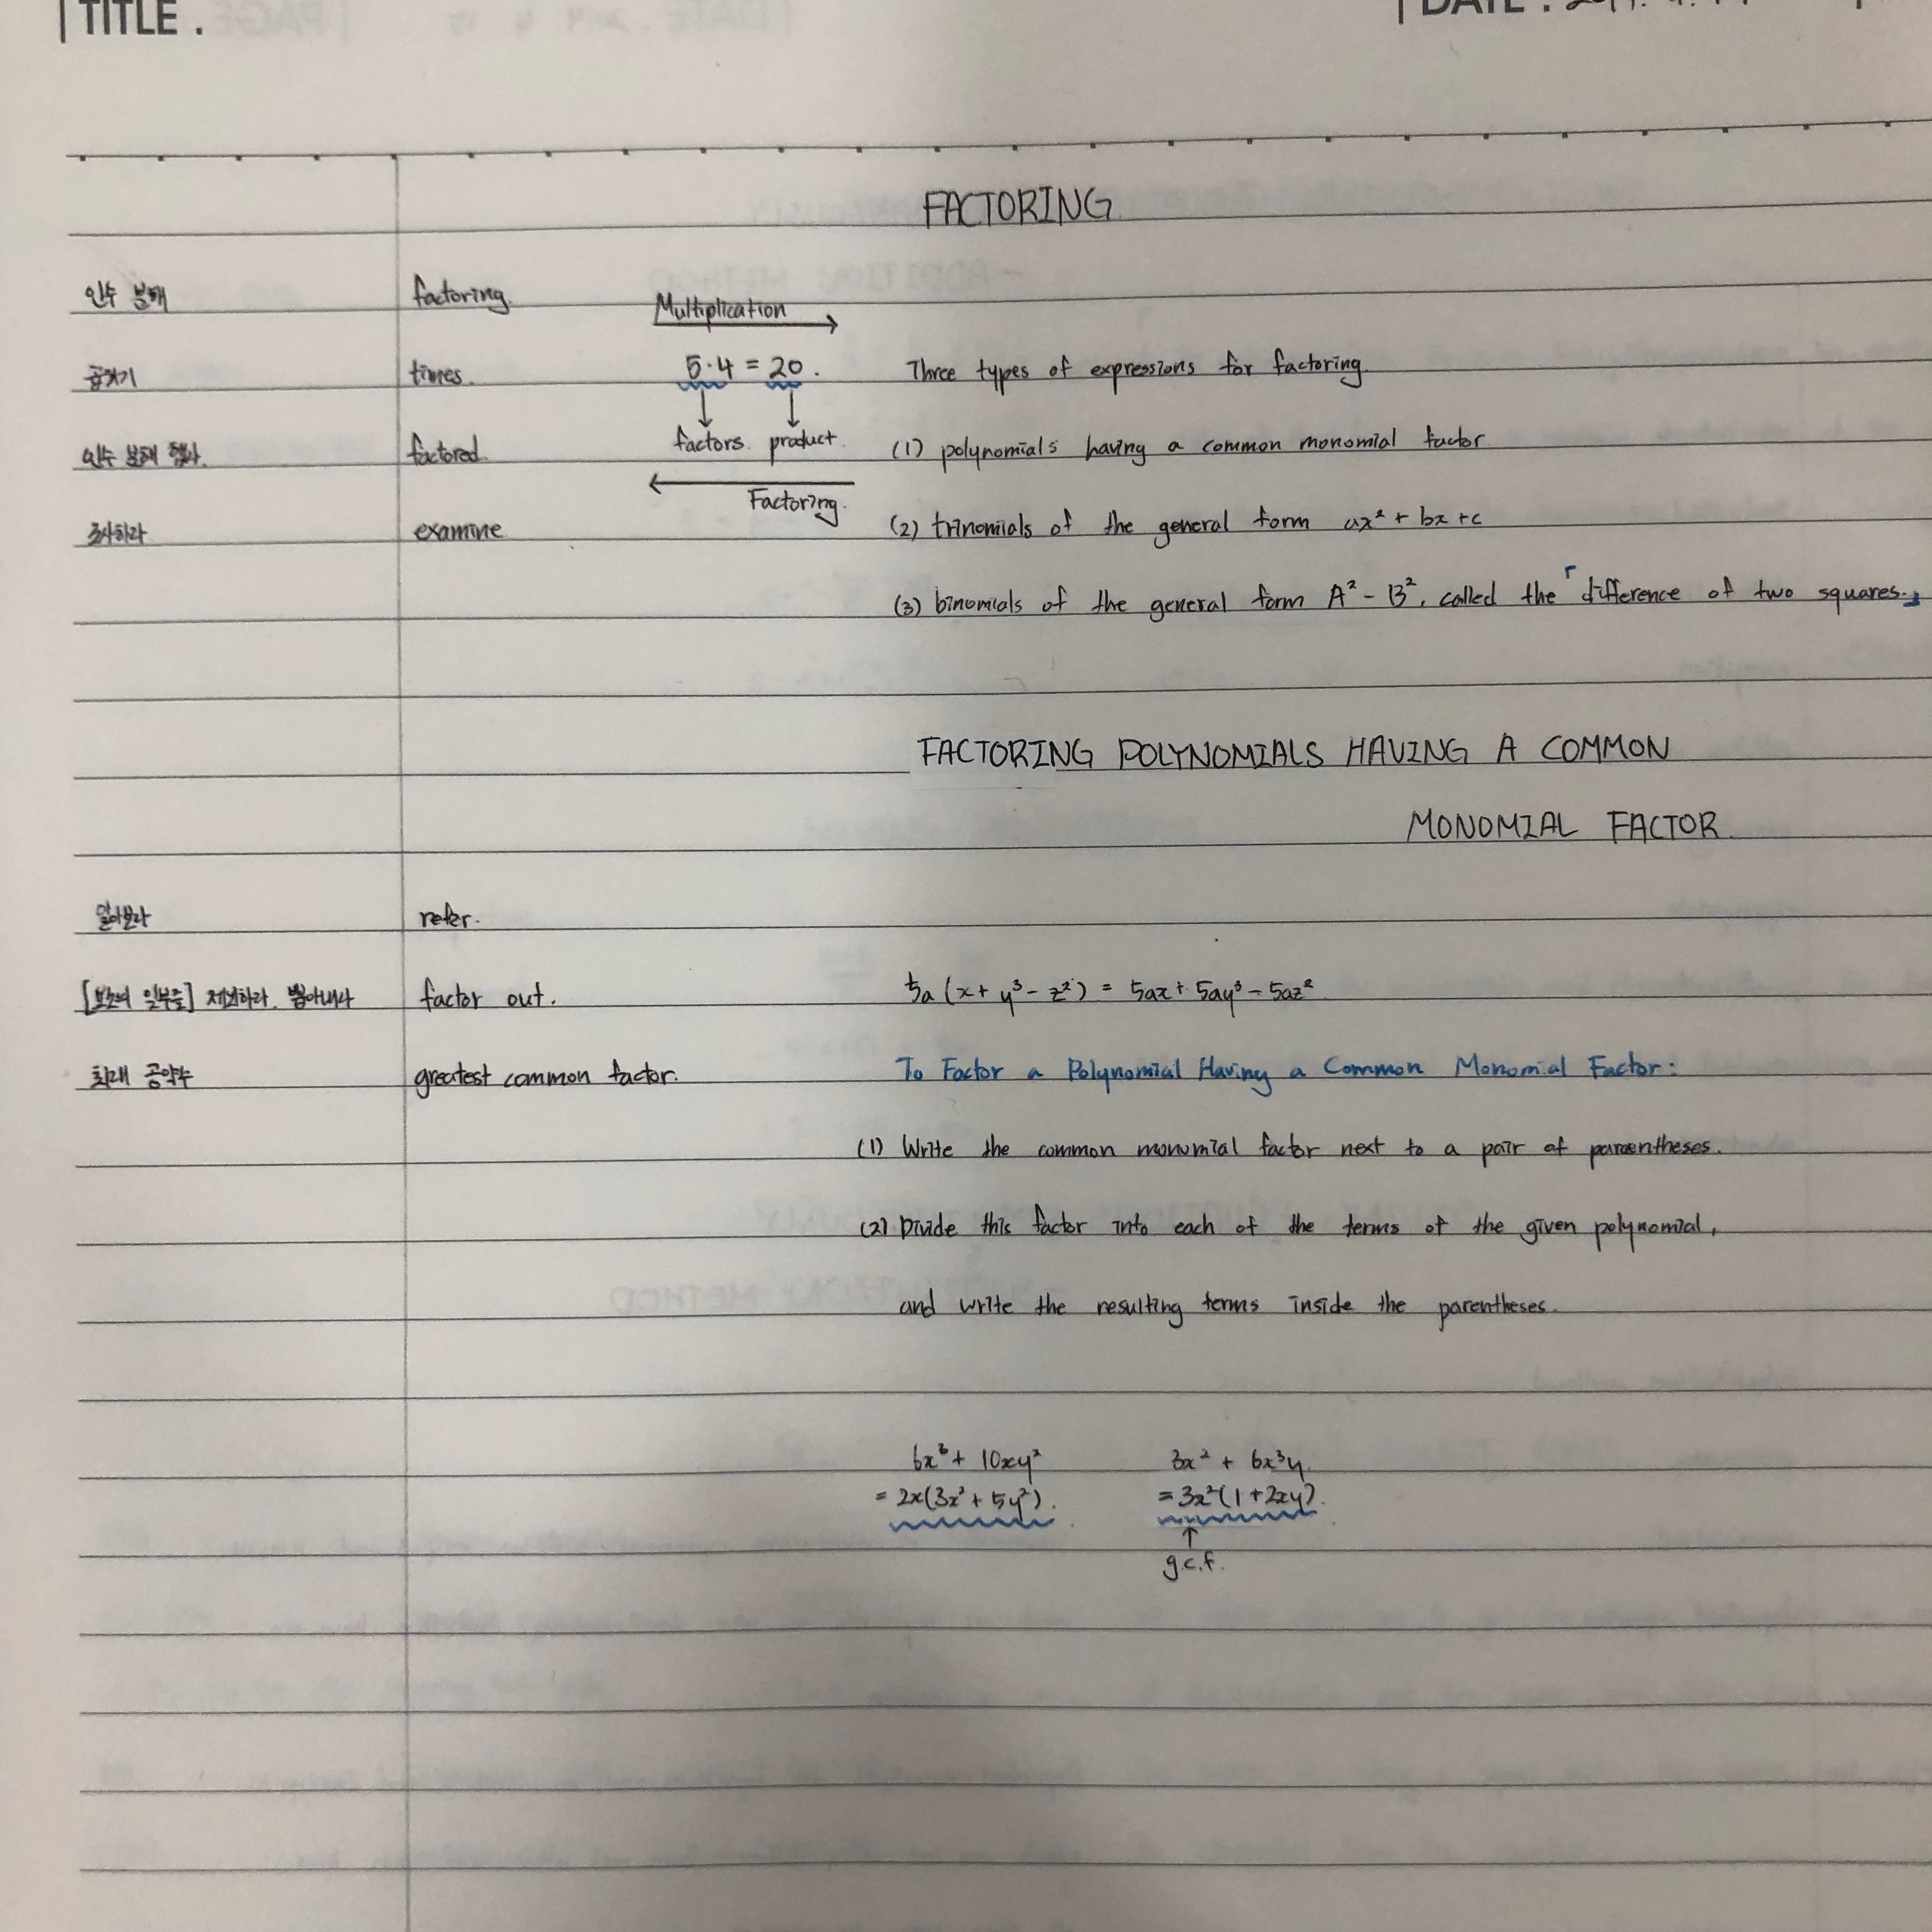 TITLE.
DATE :
FACTORING
인수 분해 factoring.
Multiplication
곱하기 times. 5·4 = 20. Three types of expressions for factoring.
인수 분해 했다. factored. factors. product. (1) polynomials having a common monomial factor.
Factoring.
조사하라 examine (2) trinomials of the general form ax² + bx + c
(3) binomials of the general form A² - B², called the 「difference of two squares.」
FACTORING POLYNOMIALS HAVING A COMMON
MONOMIAL FACTOR.
알아보라 refer.
일부를] 제외하라. 뽑아내다 factor out. 5a (x + y³ - z²) = 5ax + 5ay³ - 5az²
최대 공약수 greatest common factor. To Factor a Polynomial Having a Common Monomial Factor:
(1) Write the common monomial factor next to a pair of parentheses.
(2) Divide this factor into each of the terms of the given polynomial,
and write the resulting terms inside the parentheses.
6x³ + 10xy² 3x² + 6x³y.
= 2x(3x² + 5y²). = 3x²(1+2xy).
g.c.f.